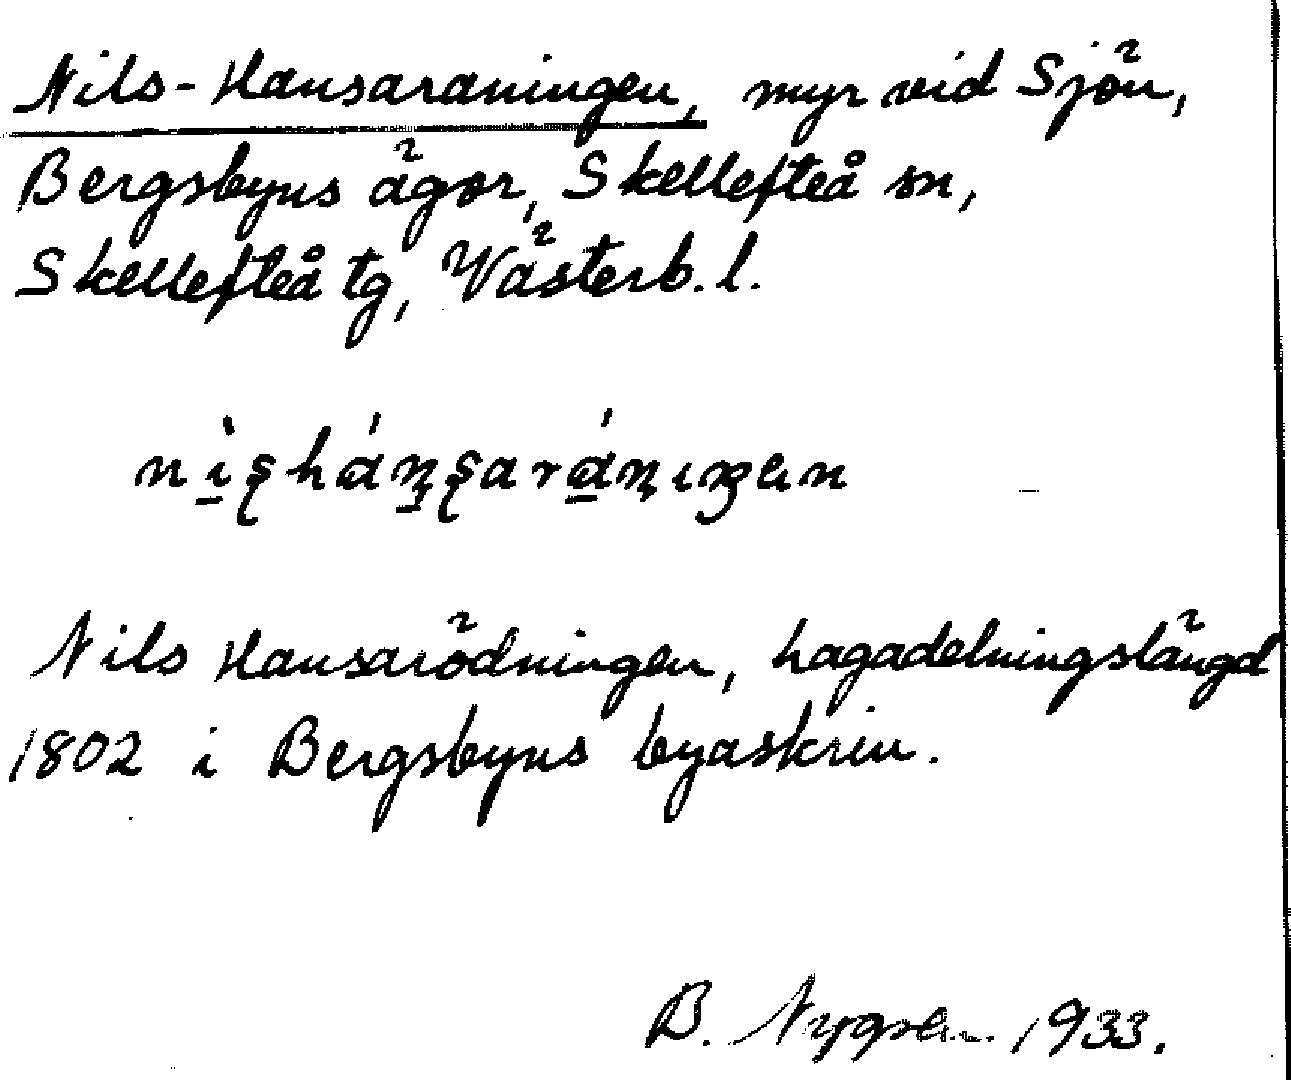 Nils-Hansaraningen, myr vid Sjön,
Bergsbyns ägor, Skellefteå sn,
Skellefteå tg, Västerb. l.
Nils Hansarödningen, hagadelningslängd
1802 i Bergsbyns byaskrin.
B. Nygren 1933.